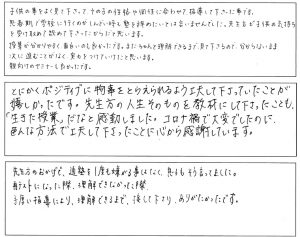 子供の事をよく見て下さって その子の性格や個性に合わせて指導して下さった事です。
思春期で学校に行くのがしんどい時も塾を辞めたいとは言いませんでした。先生方が子供の気持ち
を受け止め認めて下さったからだと思います。
授業が分かりやすく面白いのも良かったです。またちゃんと理解できるまで見て下さるので、分からないまま
次に進むことがなく、実力をつけていけたと思います。
親向けのセミナーも良かったです。
とにかくポジティブに物事をとらえられるよう工夫して下さっていたことが
嬉しかったです。先生方の人生そのものを教材にして下さったことも、
「生きた授業」だなと感動しました。コロナ禍で大変でしたのに、
色んな方法で工夫して下さったことに心から感謝しています。
先生方のおかげで、通塾を1度も嫌がる事はなく、息子もそう言ってました。
船テストになった際、理解できなかった際、
手厚い指導により、理解できるまで、接して下さり、ありがたかったです。